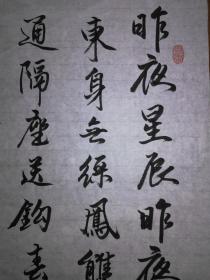 昨夜星辰昨夜
東身无綵鳳雙
通隔座送鈎春